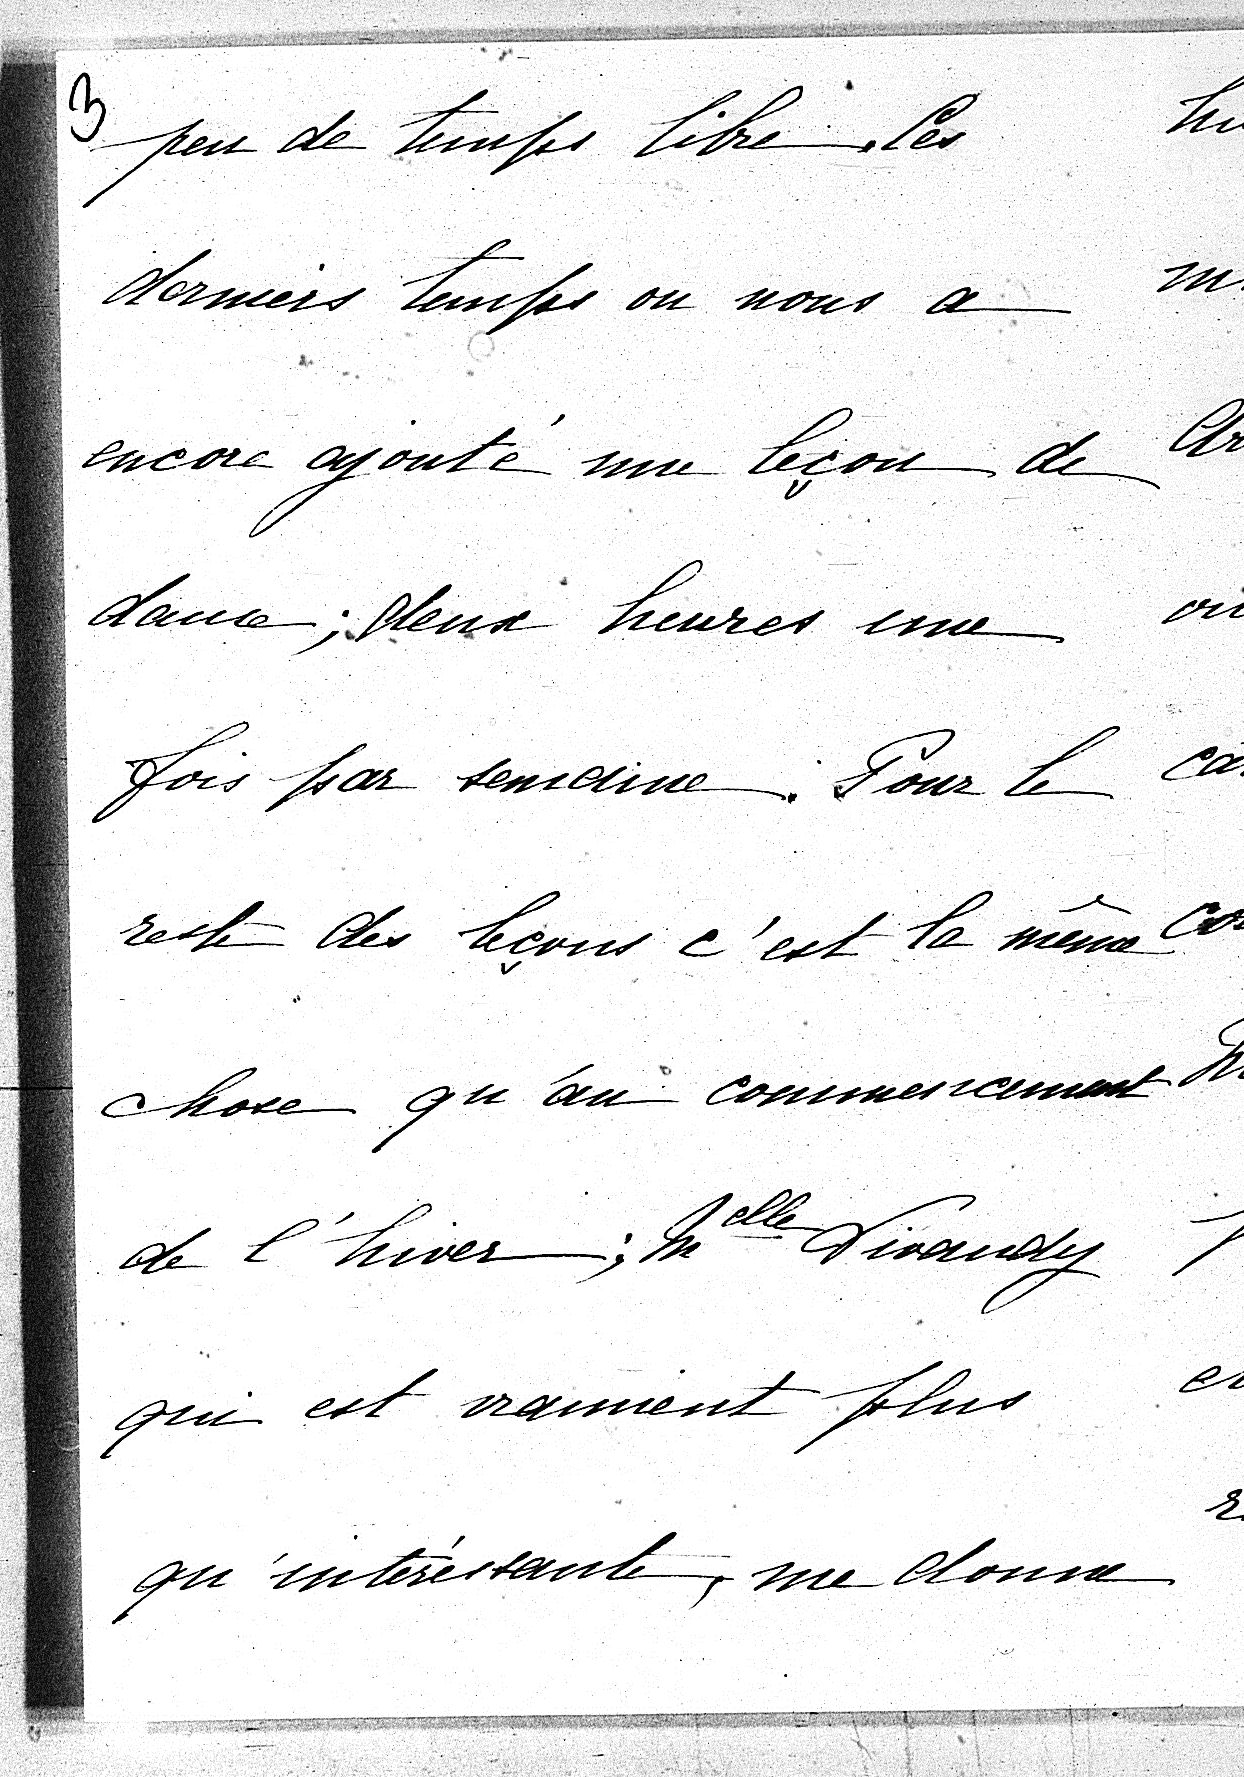 3
peu de temps libre. Ces
derniers temps on nous a
encore ajouté une leçon de
danse; deux heures une
fois par semaine. Pour le
reste des leçons c'est la même
chose qu'au commencement
de l'hiver; Melle
qui est vraiment plus
qu'intéréssante, me donne